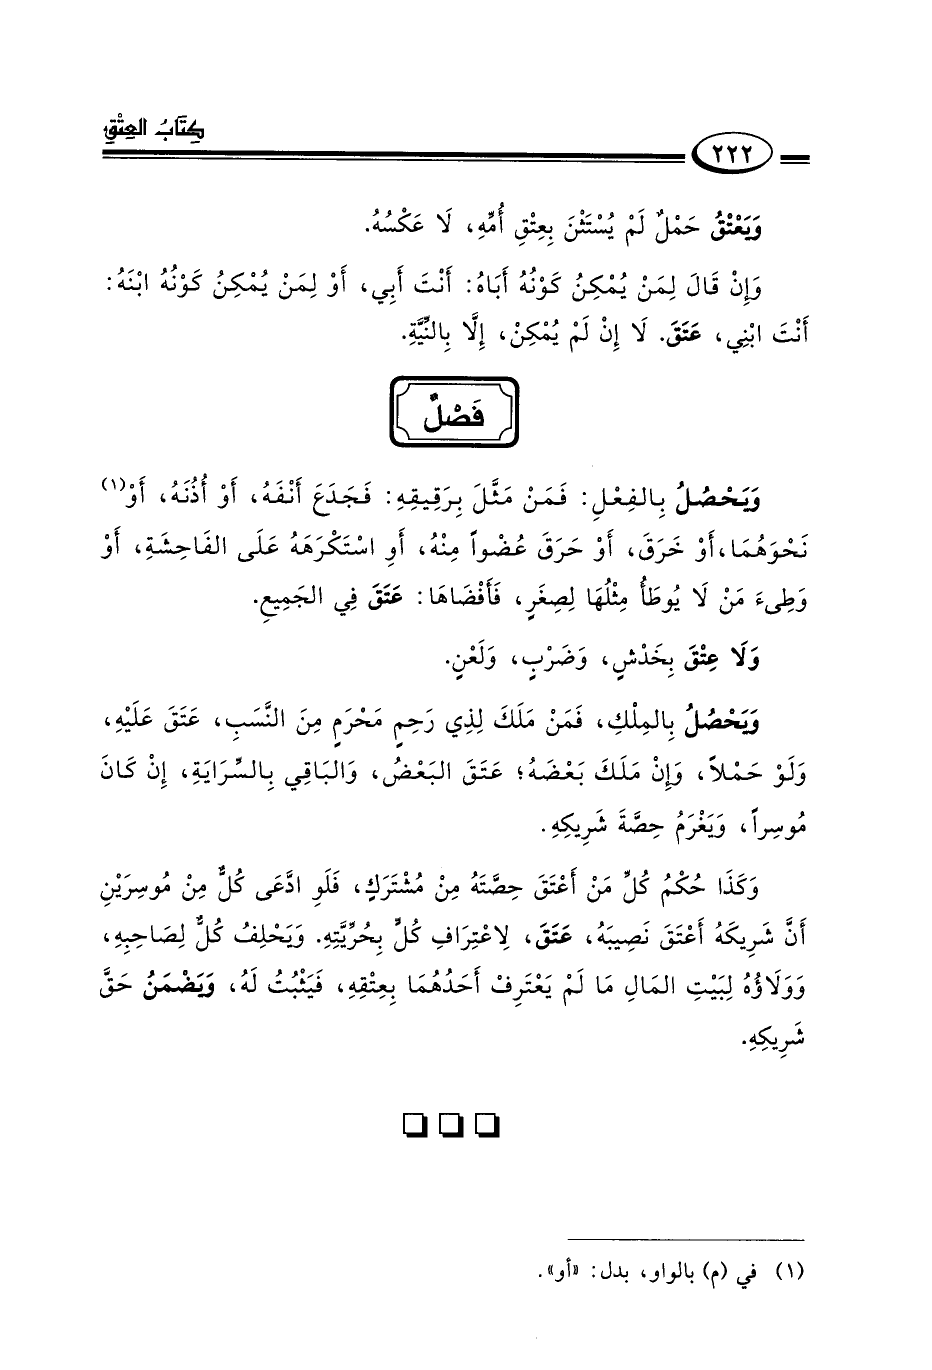 كِتَابُ العِتْقِ
٢٢٢
وَيَعْتِقُ حَمْلٌ لَمْ يُسْتَثْنَ بِعِتْقِ أُمِّهِ، لَا عَكْسُهُ.
وَإِنْ قَالَ لِمَنْ يُمْكِنُ كَوْنُهُ أَبَاهُ: أَنْتَ أَبِي، أَوْ لِمَنْ يُمْكِنُ كَوْنُهُ ابْنَهُ:
أَنْتَ ابْنِي، عَتَقَ. لَا إِنْ لَمْ يُمْكِنْ، إِلَّا بِالنِّيَّةِ.
فَصْلٌ
وَيَحْصُلُ بِالفِعْلِ: فَمَنْ مَثَّلَ بِرَقِيقِهِ: فَجَدَعَ أَنْفَهُ، أَوْ أُذُنَهُ، أَوْ(١)
نَحْوَهُمَا،أَوْ خَرَقَ، أَوْ حَرَقَ عُضْواً مِنْهُ، أَوِ اسْتَكْرَهَهُ عَلَى الفَاحِشَةِ، أَوْ
وَطِىءَ مَنْ لَا يُوطَأُ مِثْلُهَا لِصِغَرٍ، فَأَفْضَاهَا: عَتَقَ فِي الجَمِيعِ.
وَلَا عِتْقَ بِخَدْشٍ، وَضَرْبٍ، وَلَعْنٍ.
وَيَحْصُلُ بِالمِلْكِ، فَمَنْ مَلَكَ لِذِي رَحِمٍ مَحْرَمٍ مِنَ النَّسَبِ، عَتَقَ عَلَيْهِ،
وَلَوْ حَمْلاً، وَإِنْ مَلَكَ بَعْضَهُ؛ عَتَقَ البَعْضُ، وَالبَاقِي بِالسِّرَايَةِ، إِنْ كَانَ
مُوسِراً، وَيَغْرَمُ حِصَّةَ شَرِيكِهِ.
وَكَذَا حُكْمُ كُلِّ مَنْ أَعْتَقَ حِصَّتَهُ مِنْ مُشْتَرَكٍ، فَلَوِ ادَّعَى كُلٌّ مِنْ مُوسِرَيْنِ
أَنَّ شَرِيكَهُ أَعْتَقَ نَصِيبَهُ، عَتَقَ، لِاعْتِرَافِ كُلٍّ بِحُرِّيَّتِهِ. وَيَحْلِفُ كُلٌّ لِصَاحِبِهِ،
وَوَلَاؤُهُ لِبَيْتِ المَالِ مَا لَمْ يَعْتَرِفْ أَحَدُهُمَا بِعِتْقِهِ، فَيَثْبُتُ لَهُ، وَيَضْمَنُ حَقَّ
شَرِيكِهِ.
(١) في (م) بالواو، بدل: «أو».